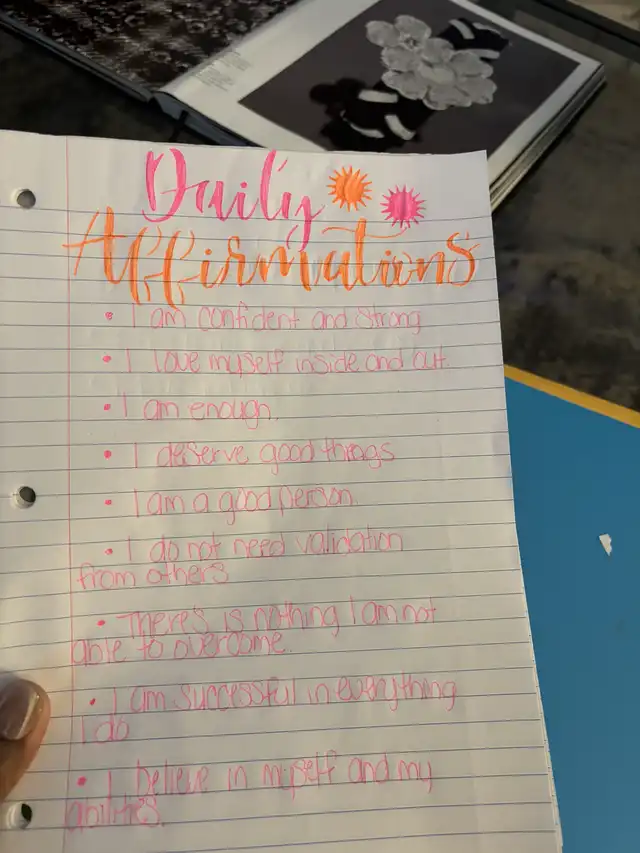 Daily
Affirmations
• I am confident and strong
• I love myself inside and out.
• I am enough.
• I deserve good things
• I am a good person.
• I do not need validation
from others
• There's is nothing I am not
able to overcome.
• I am successful in everything
I do
• I believe in myself and my
abilities.